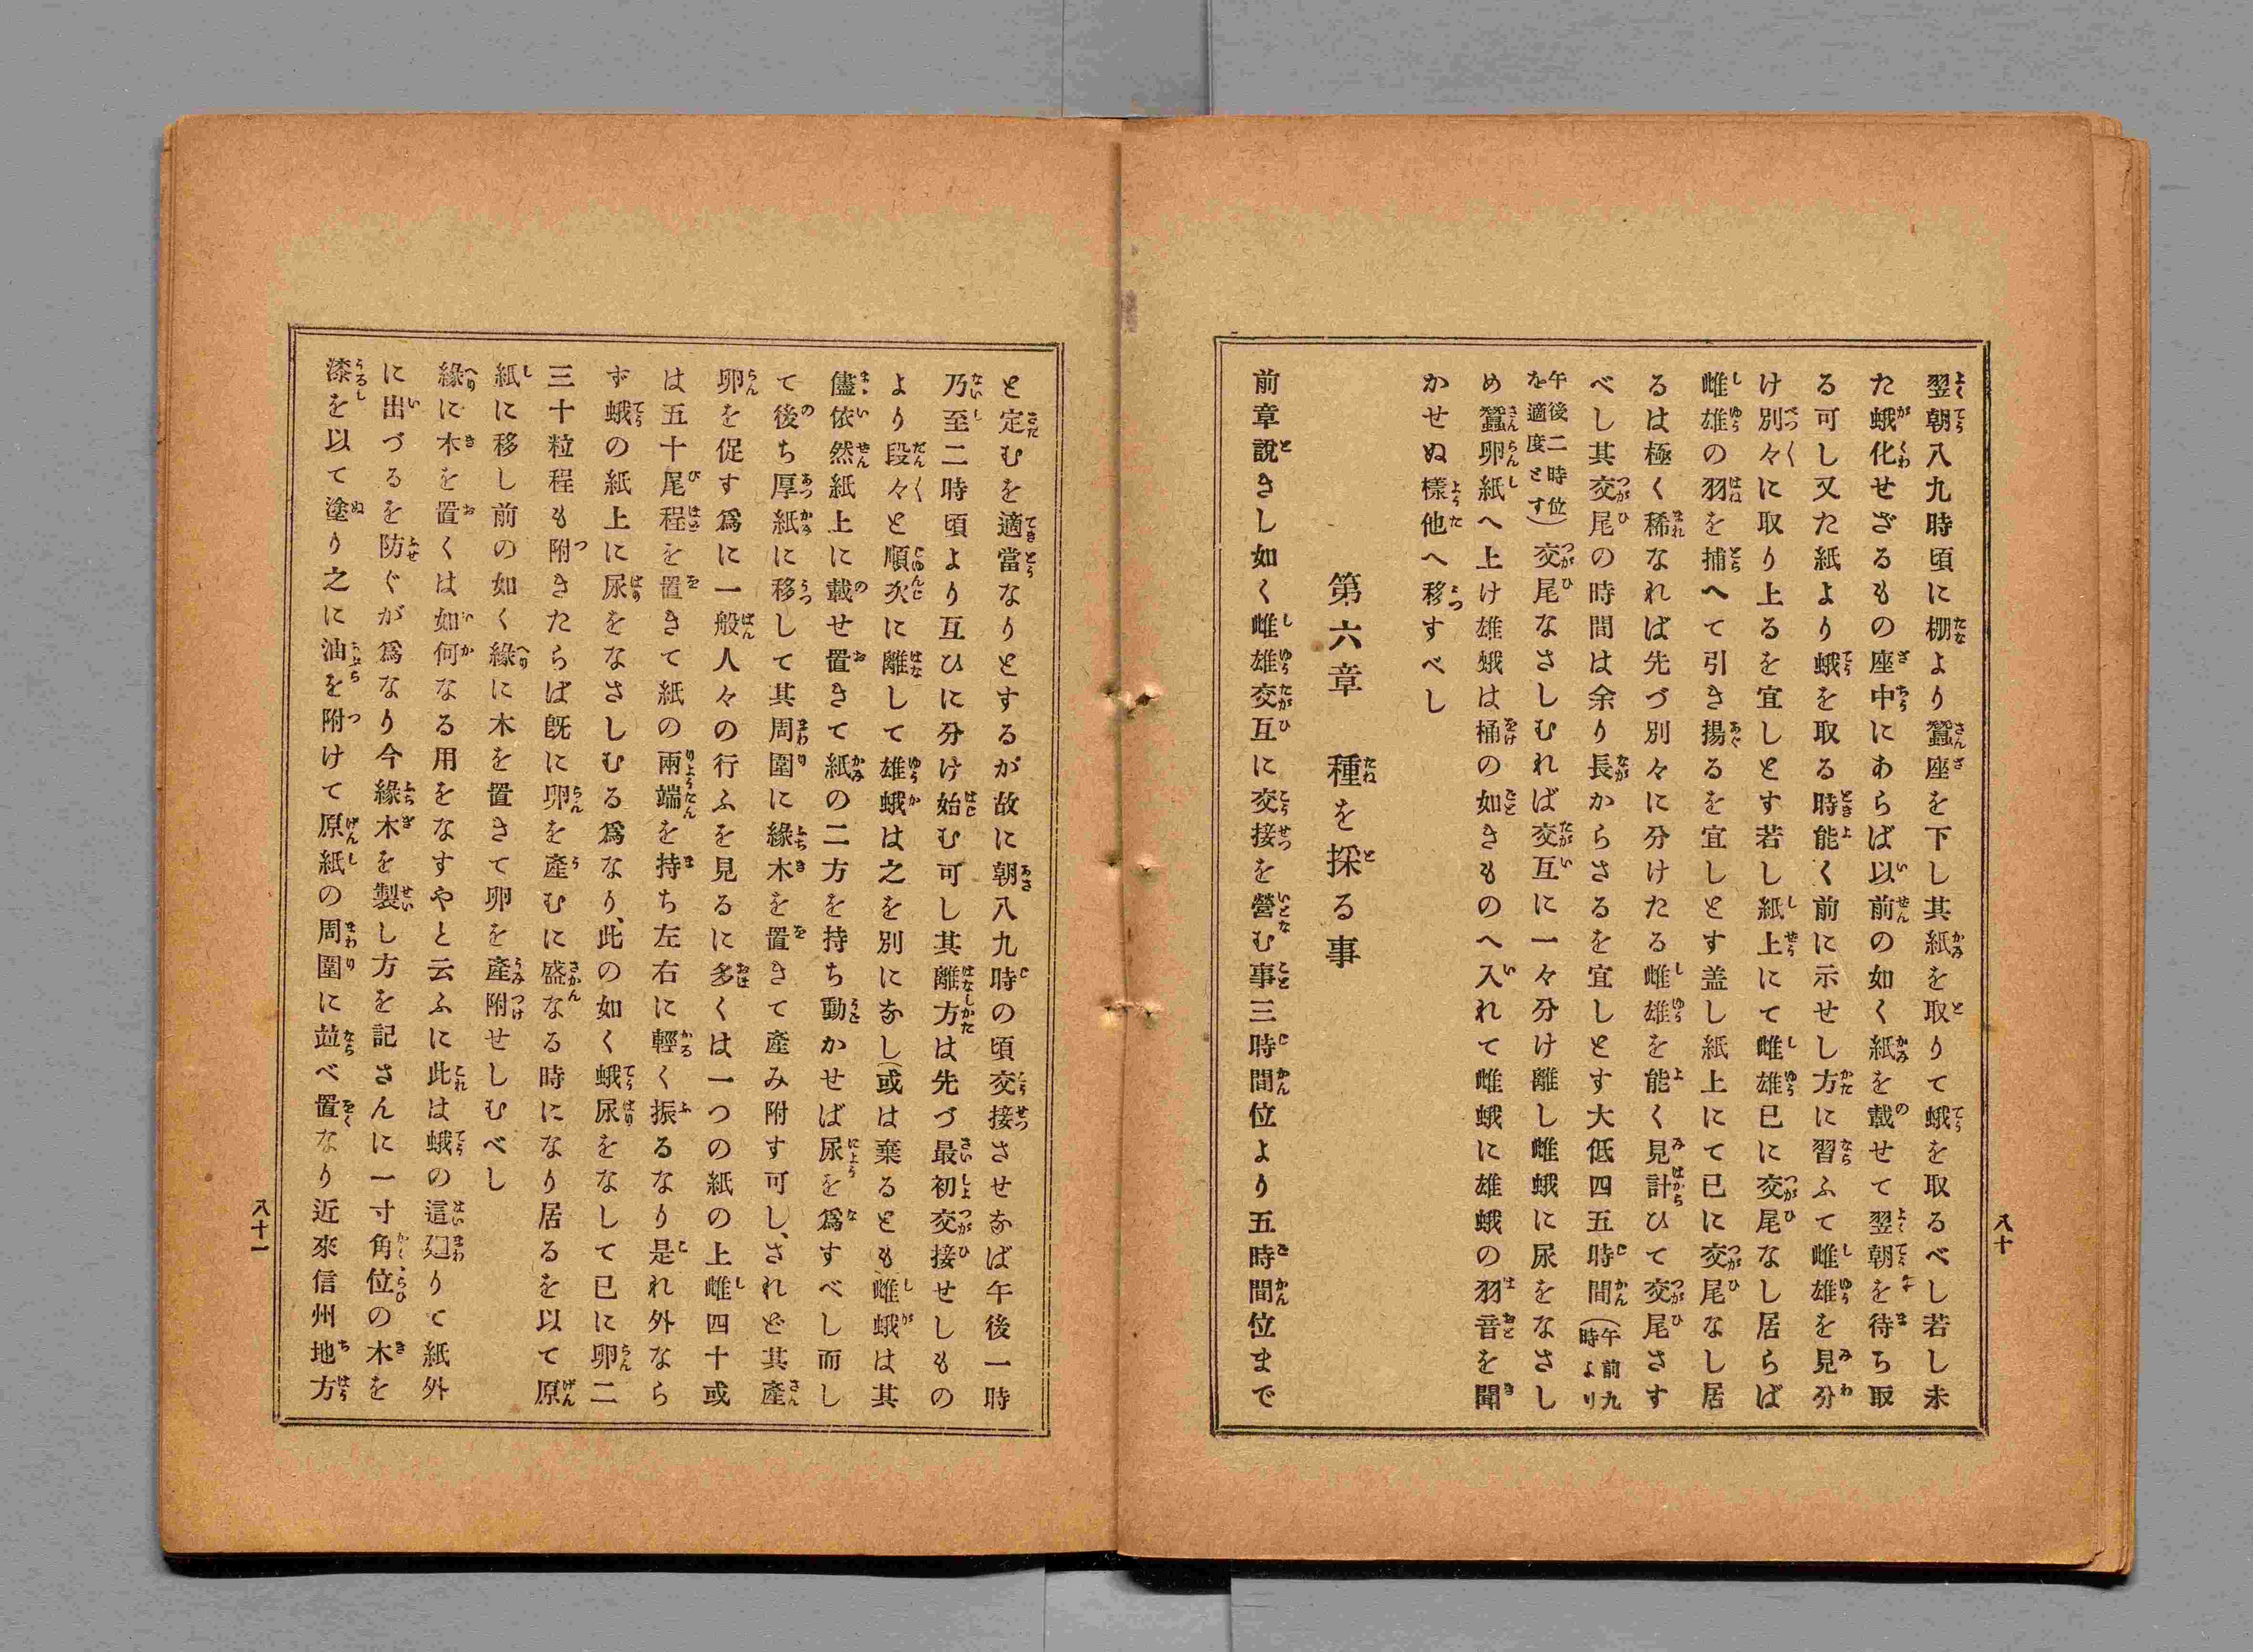 翌朝八九時頃に棚より蠶座を下し其紙を取りて蛾を取るべし若し未
た蛾化せざるもの座中にあらば以前の如く紙を載せて翌朝を待ち取
る可し又た紙より蛾を取る時能く前に示せし方に習ふて雌雄を見分
け別々に取り上るを宜しとす若し紙上にて雌雄已に交尾なし居らば
雌雄の羽を捕へて引き揚るを宜しとす盖し紙上にて已に交尾なし居
るは極く稀なれば先づ別々に分けたる雌雄を能く見計ひて交尾さす
べし其交尾の時間は余り長からさるを宜しとす大低四五時間(午前九時より
午後二時位を適度とす)交尾なさしむれば交互に一々分け離し雌蛾に尿をなさし
め蠶卵紙へ上け雄蛾は桶の如きものへ入れて雌蛾に雄蛾の羽音を聞
かせぬ樣他へ移すべし
第六章　種を採る事
前章說きし如く雌雄交互に交接を營む事三時間位より五時間位まで
八十
と定むを適當なりとするが故に朝八九時の頃交接させなば午後一時
乃至二時頃より互ひに分け始む可し其離方は先づ最初交接せしもの
より段々と順次に離して雄蛾は之を別になし(或は棄るとも雌蛾は其
儘依然紙上に載せ置きて紙の二方を持ち動かせば尿を爲すべし而し
て後ち厚紙に移して其周圍に緣木を置きて產み附す可し、されど其產
卵を促す爲に一般人々の行ふを見るに多くは一つの紙の上雌四十或
は五十尾程を置きて紙の兩端を持ち左右に輕く振るなり是れ外なら
ず蛾の紙上に尿をなさしむる爲なり、此の如く蛾尿をなして已に卵二
三十粒程も附きたらば旣に卵を產むに盛なる時になり居るを以て原
紙に移し前の如く緣に木を置きて卵を產附せしむべし
緣に木を置くは如何なる用をなすやと云ふに此は蛾の這廻りて紙外
に出づるを防ぐが爲なり今緣木を製し方を記さんに一寸角位の木を
漆を以て塗り之に油を附けて原紙の周圍に並べ置なり近來信州地方
八十一